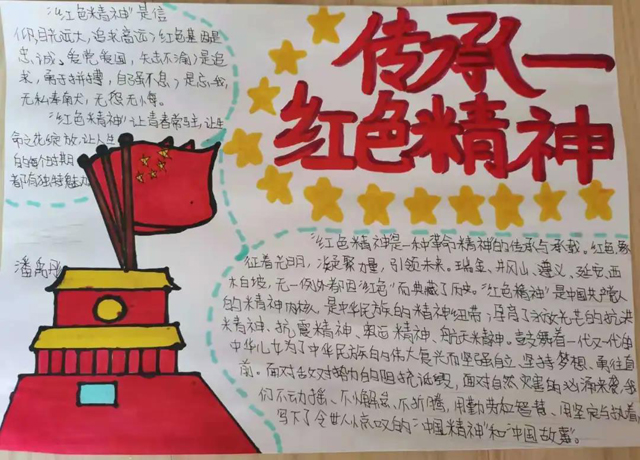 传承一
红色精神
"红色精神"是信
仰,目光远大,追求高远;红色基因是
忠诚,爱党爱国,矢志不渝;是追
求,勇于拼搏,自强不息;是忘我,
无私奉献,无怨无悔。
"红色精神"让青春常驻,让生
命之花绽放,让人生
的每个时期
都有独特魅力
潘禹彤
"红色精神是一种革命精神的传承与承载。红色,象
征着光明,凝聚力量,引领未来。瑞金、井冈山、遵义、延安、西
柏坡,无一例外都因"红色"而典藏了历史。"红色精神"是中国共产党人
的精神内核,是中华民族的精神纽带;孕育了永放光芒的抗洪
精神、抗震精神、奥运精神、航天精神。鼓舞着一代又一代的
中华儿女为了中华民族的伟大复兴而坚强自立,坚持梦想、勇往直
前。面对敌对势力的阻挠诋毁,面对自然灾害的汹涌来袭,我
们不动摇、不懈怠、不折腾,用勤劳和智慧、用坚定与执着,
写下了令世人惊叹的"中国精神"和"中国故事"。